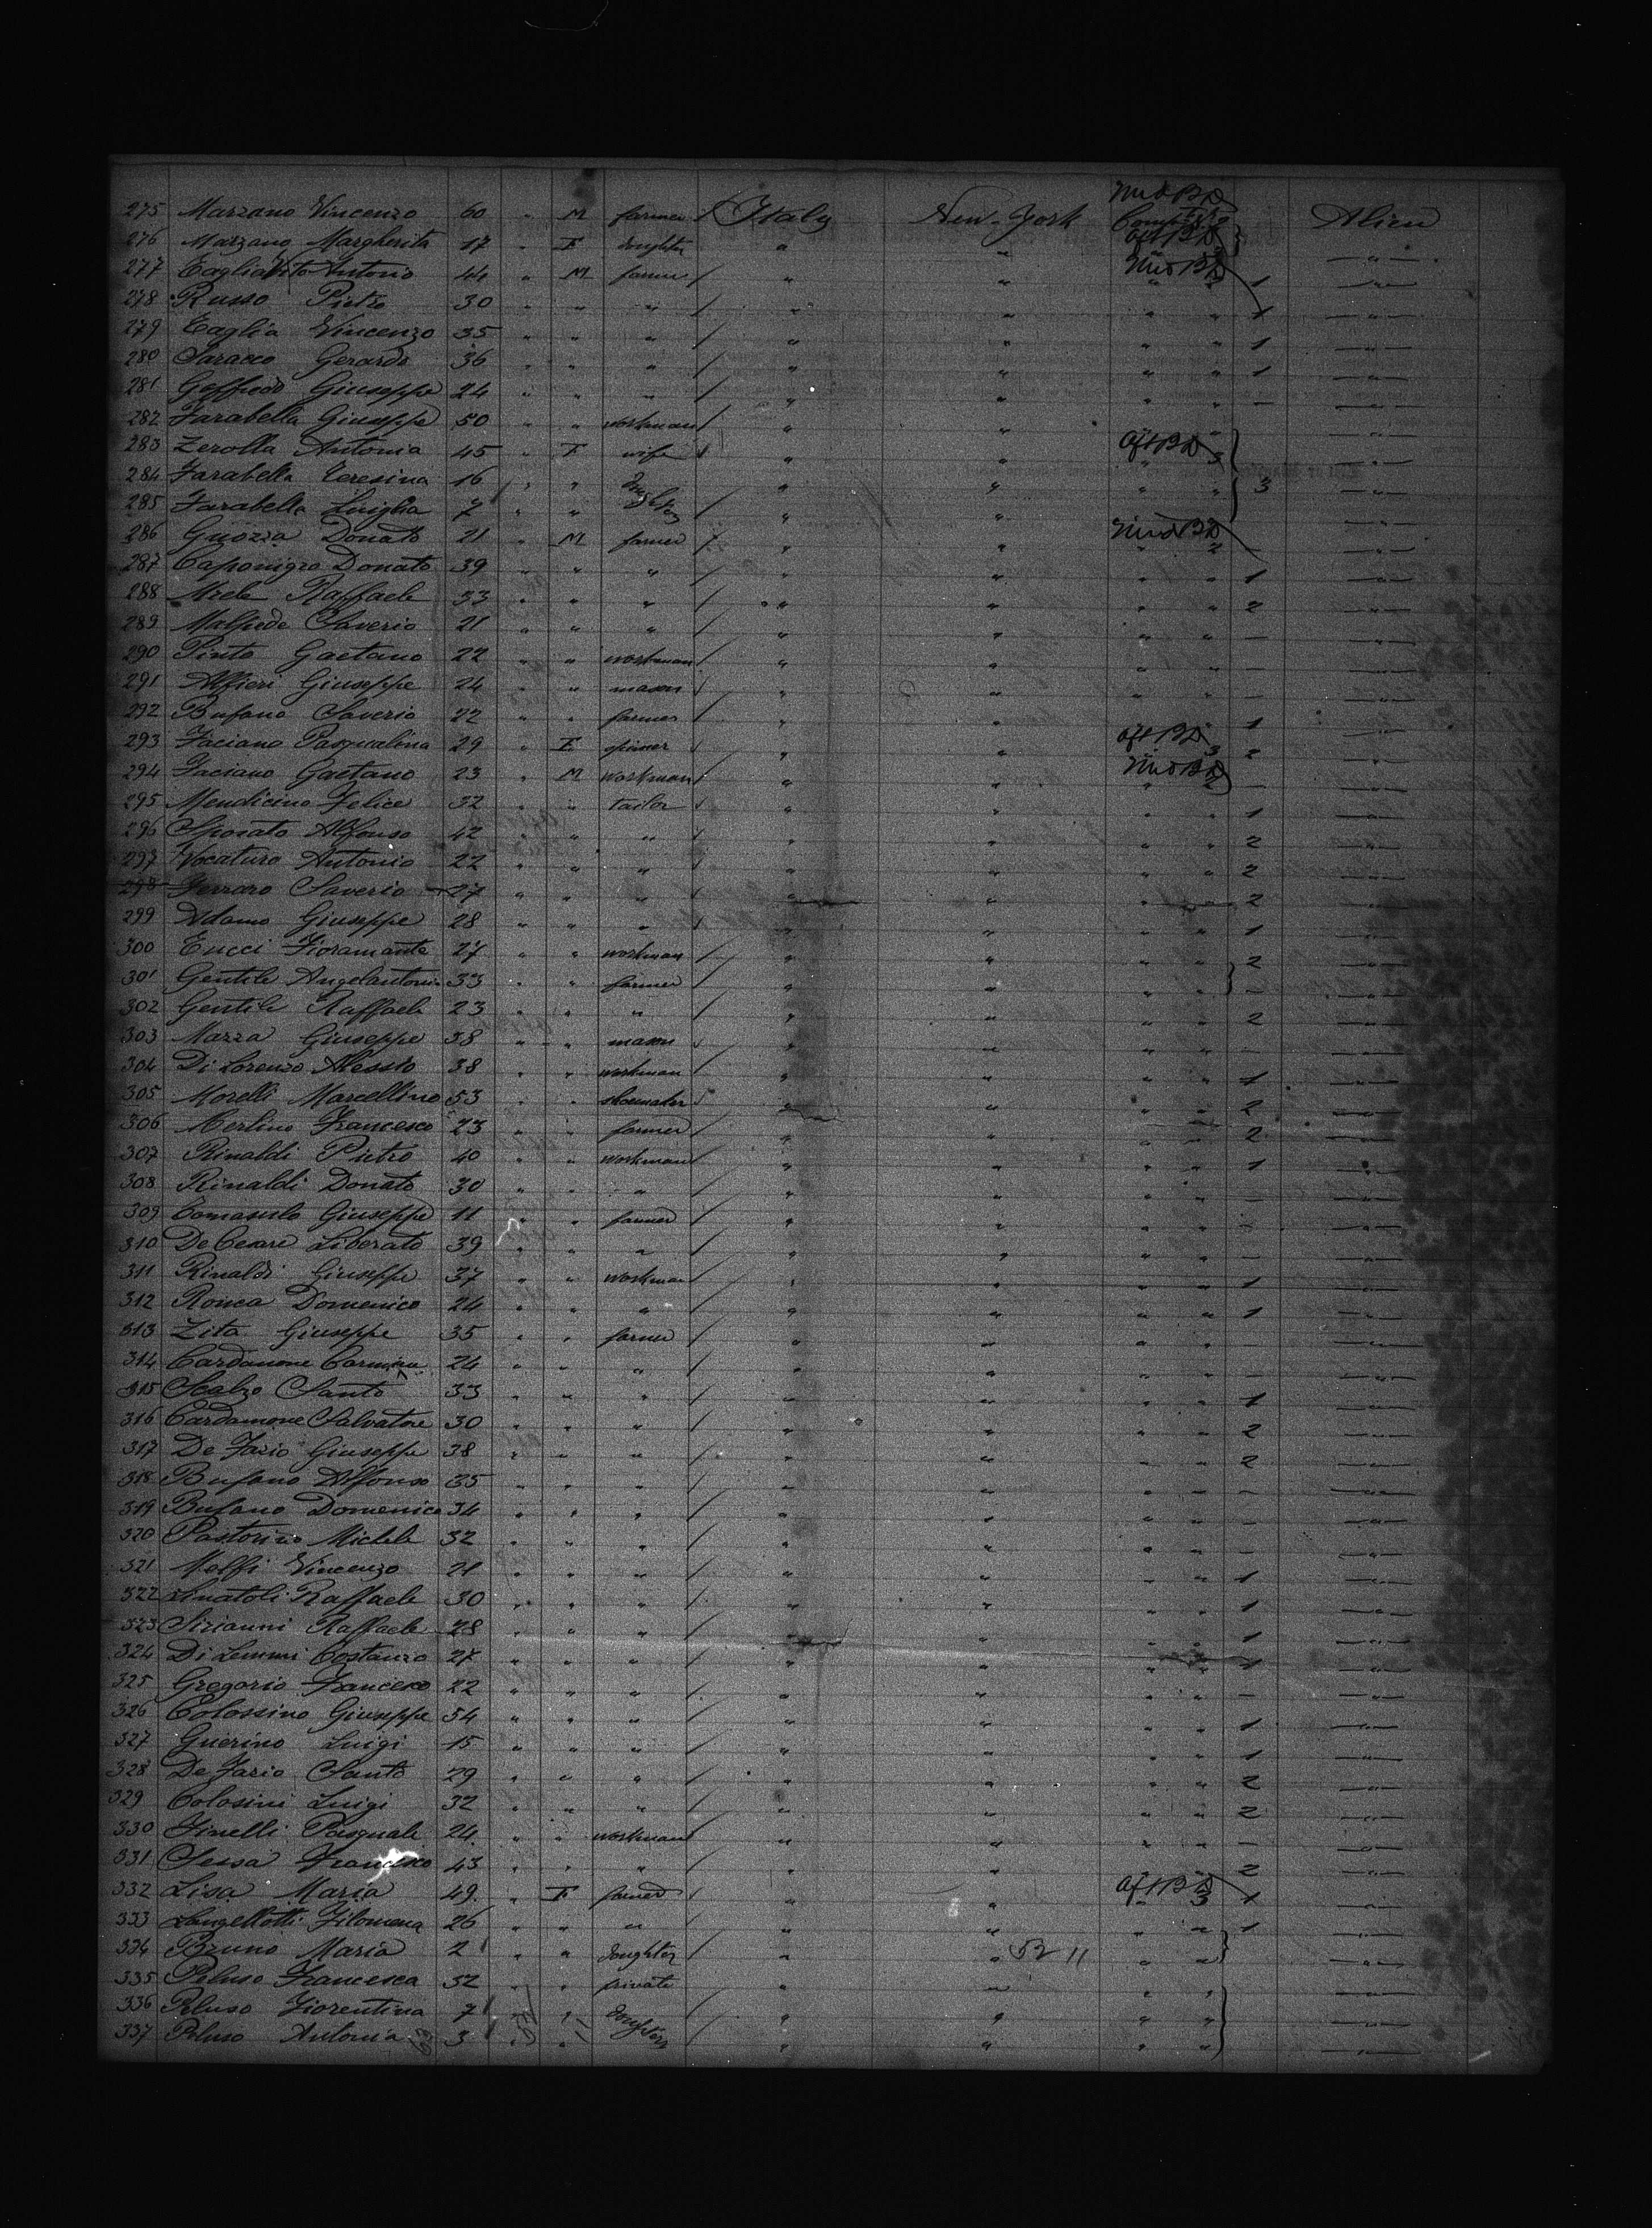 275 Marzano Vincenzo 60 " M farmer / Italy New-York Mid BD Comp. Alien
276 Marzano Margherita 17 " F doughter " " Aft BD 3 "
277 Taglia Vito Antonio 44 " M farmer / " " Mid BD 2 1 "
278 Russo Pietro 30 " " " / " " " " 1 "
279 Taglia Vincenzo 35 " " " / " " " " 1 "
280 Saracco Gerardo 36 " " " / " " " " 1 "
281 Goffredo Giuseppe 24 " " " / " " " " — "
282 Farabella Giuseppe 50 " " workman / " " " "
283 Zerolla Antonia 45 " F wife / " " Aft BD 3 "
284 Farabella Teresina 16 " " daughter " " " " 3 "
285 Farabella Luigia 7 " " / " " "
286 Guozza Donato 21 " M farmer / " " Mid BD 2 — "
287 Caponigro Donato 39 " " " / " " " " 1 "
288 Mele Raffaele 33 " " " / " " " " 2 "
289 Malfede Saverio 21 " " " / " " " " — "
290 Pinto Gaetano 22 " " workman / " " " " — "
291 Alfieri Giuseppe 24 " " mason / " " " " — "
292 Bufano Saverio 22 " " farmer / " " " " 1 "
293 Faciano Pasqualina 29 " F spiner / " " Aft BD 3 2 "
294 Faciano Gaetano 23 " M workman / " " Mid BD 2 — "
295 Mendicino Felice 32 " " tailor / " " " " 1 "
296 Sporato Alfonso 42 " " " / " " " " 2 "
297 Vocaturo Antonio 22 " " " / " " " " 2 "
298 Ferraro Saverio 27 " " " / " " " " 2 "
299 Adamo Giuseppe 28 " " " / " " " " 1 "
300 Tucci Fioramante 27 " " workman / " " " " 2 "
301 Gentile Angelantonio 33 " " farmer / " " " " — "
302 Gentile Raffaele 23 " " " / " " " " 2 "
303 Mazza Giuseppe 38 " " mason / " " " " — "
304 Di Lorenzo Alessio 38 " " workman / " " " " 1 "
305 Morelli Marcellino 53 " " shoemaker / " " " " 2 "
306 Merlino Francesco 23 " " farmer / " " " " 2 "
307 Rinaldi Pietro 40 " " workman / " " " " 1 "
308 Rinaldi Donato 30 " " " / " " " " — "
309 Tomasulo Giuseppe 11 " " farmer / " " " " — "
310 De Cesare Liberato 39 " " " / " " " " — "
311 Rinaldi Giuseppe 37 " " workman / " " " " 1 "
312 Ronca Domenico 24 " " " / " " " " 1 "
313 Zita Giuseppe 35 " " farmer / " " " " — "
314 Cardamone Carmine 24 " " " / " " " " — "
315 Scalzo Santo 33 " " " / " " " " 1 "
316 Cardamone Salvatore 30 " " " / " " " " 2 "
317 De Fazio Giuseppe 38 " " " / " " " " 2 "
318 Bufano Alfonso 35 " " " / " " " " — "
319 Bufano Domenico 34 " " " / " " " " — "
320 Pastorino Michele 32 " " " / " " " " — "
321 Molfi Vincenzo 21 " " " / " " " " 1 "
322 Linatoli Raffaele 30 " " " / " " " " 1 "
323 Sirianni Raffaele 28 " " " / " " " " 1 "
324 Di Lemmi Costanzo 27 " " " / " " " " 1 "
325 Gregorio Francesco 22 " " " / " " " " — "
326 Colossino Giuseppe 54 " " " / " " " " 1 "
327 Guerino Luigi 15 " " " / " " " " 1 "
328 De Fazio Santo 29 " " " / " " " " 2 "
329 Colosini Luigi 32 " " " / " " " " 2 "
330 Finelli Pasquale 24 " " workman / " " " " — "
331 Sessa Francesco 43 " " " / " " " " 2 "
332 Lisa Maria 49 " F farmer / " " Aft BD 3 1 "
333 Langellotti Filomena 26 " " " / " " " " 1 "
334 Bruno Maria 2 " " doughter / " " 52 11 " " "
335 Peluso Francesca 32 " " private " " " " "
336 Peluso Fiorentina 7 " " doughters / " " " " "
337 Peluso Antonia 3 " " " " " " "